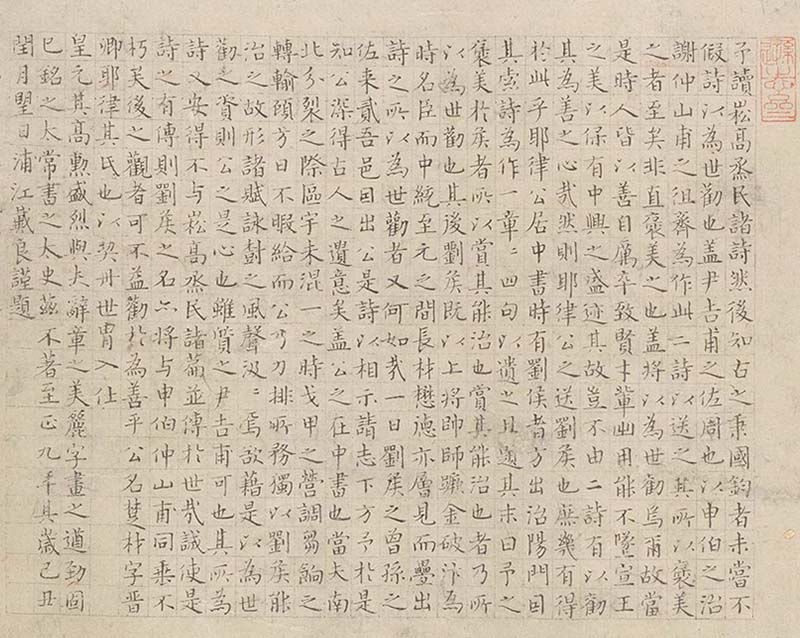 予讀崧高烝民諸詩然後知古之秉國鈞者未嘗不
假詩以為世勸也蓋尹吉甫之佐周也以申伯之治
謝仲山甫之徂齊為作此二詩以送之其所以褒美
之者至矣非直褒美之也蓋將以為世勸焉爾故當
是時人皆以善自厲卒致賢才輩出用能不墜宣王
之美以保有中興之盛迹其故豈不由二詩有以勸
其為善之心哉然則耶律公之送劉侯也庶幾有得
於此乎耶律公居中書時有劉侯者方出治陽門因
其索詩為作一章〻四句以遺之且題其末曰予之
褒美於侯者所以賞其能治也賞其能治也者乃所
以為世勸也其後劉侯既以上將帥師蹶金破汴為
時名臣而中統至元之間長材懋德亦層見而疊出
詩之所以為世勸者又何如哉一日劉侯之曾孫之
佐來貳吾邑因出公是詩以相示請志下方予於是
知公深得古人之遺意矣蓋公之在中書也當夫南
北分裂之際區宇未混一之時戈甲之營調芻餉之
轉輸頋方日不暇給而公乃力排昕務獨以劉侯能
治之故形諸賦詠尌之風聲汲〻焉欲藉是以為世
勸之資則公之是心也雖質之尹吉甫可也其所為
詩又安得不与崧高烝民諸篇並傳於世哉誠使是
詩之有傳則劉侯之名亦將与申伯仲山甫同垂不
朽矣後之觀者可不益勸於為善乎公名楚材字晉
卿耶律其氏也以契丹世冑入仕
皇元其高勳盛烈與夫辭章之美麗字畫之遒勁固
已銘之太常書之太史茲不著至正九年其歲己丑
閏月望日浦江戴良謹題